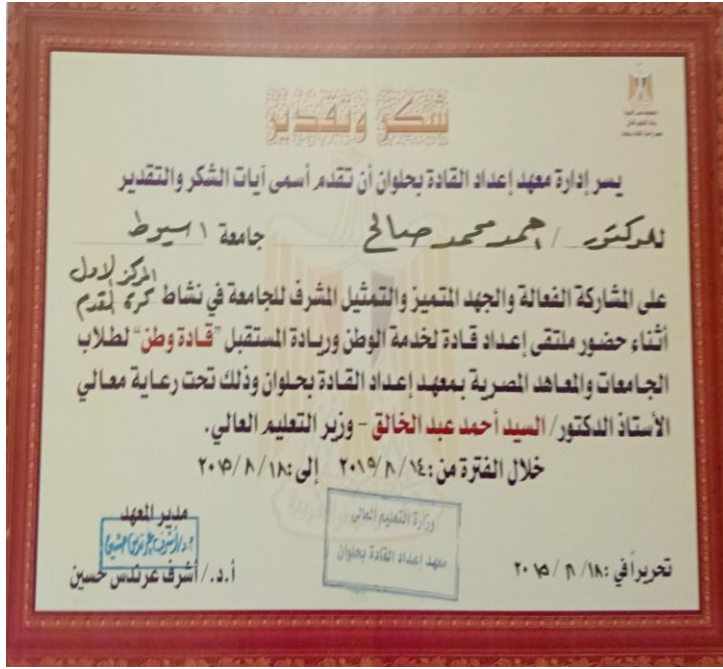 شكر وتقدير
يسر إدارة معهد إعداد القادة بحلوان أن تقدم أسمى آيات الشكر والتقدير
للدكتور / احمد محمد صالح جامعة اسيوط
المركز الاول
على المشاركة الفعالة والجهد المتميز والتمثيل المشرف للجامعة في نشاط كرة القدم
أثناء حضور ملتقى إعداد قادة لخدمة الوطن وريادة المستقبل "قادة وطن" لطلاب
الجامعات والمعاهد المصرية بمعهد إعداد القادة بحلوان وذلك تحت رعاية معالي
الأستاذ الدكتور/ السيد أحمد عبد الخالق - وزير التعليم العالي.
خلال الفترة من: ١٤/ ٨/ ٢٠١٥ إلى: ١٨/ ٨/ ٢٠١٥
مدير المعهد
أ.د./ أشرف عرندس حسين
وزارة التعليم العالي
معهد إعداد القادة بحلوان
أ.د./ أشرف عرندس حسين
تحريراً في: ١٨/ ٨/ ٢٠١٥